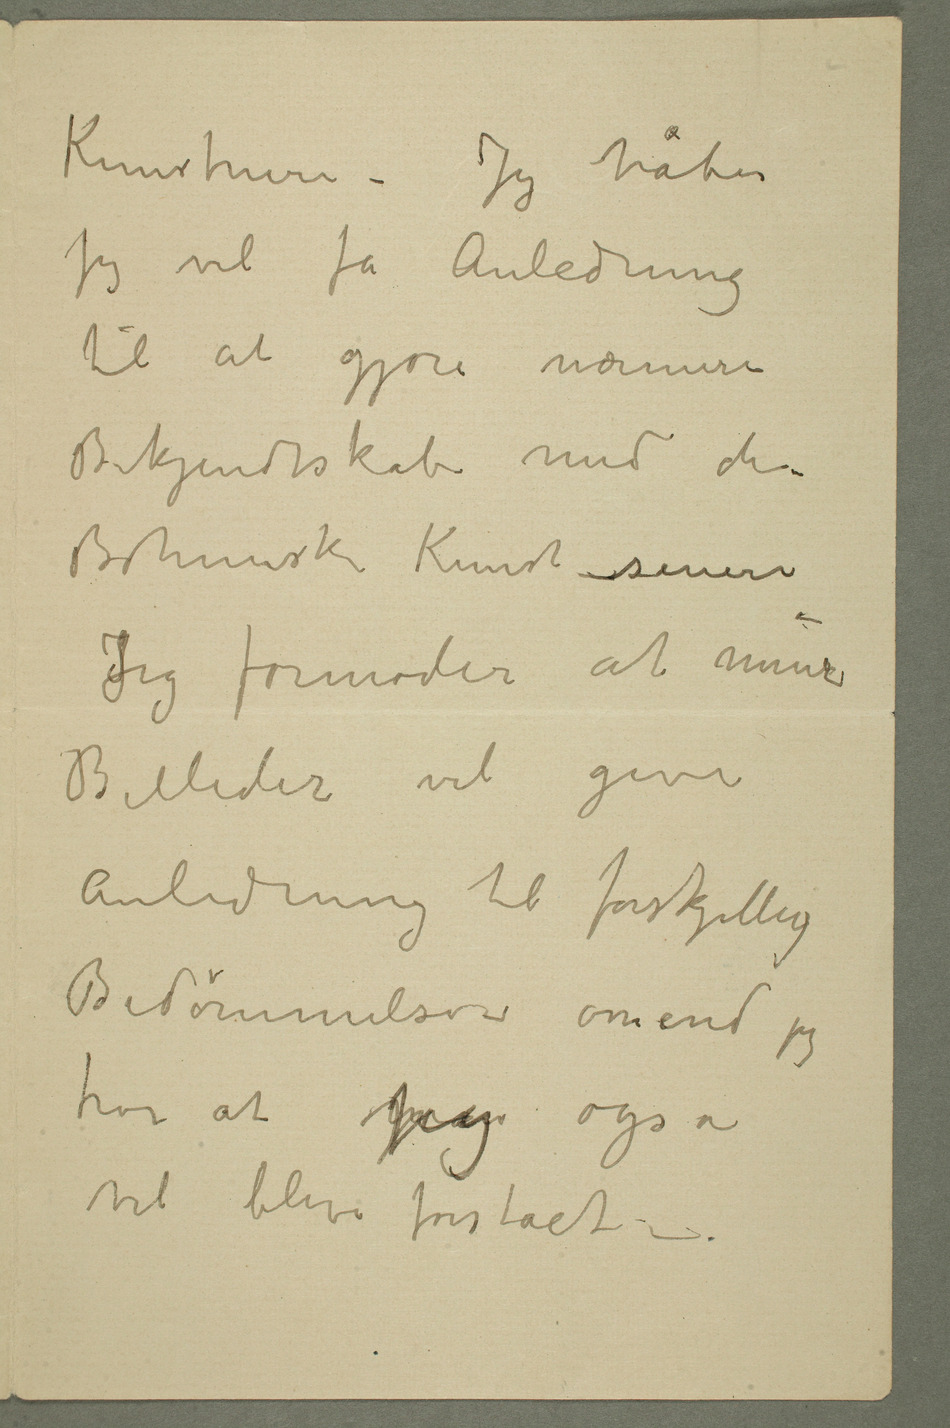 Kunstnere – Jeg håber
jeg vil fa Anledning
til at gjøre nærmere
Bekjendtskab med den
Bøhmiske Kunst senere
Jeg formoder at mine
Billeder vil give
Anledning til forskjellig
Bedömmelser omend jeg
tror at jeg også
vil blive forstaaet –.